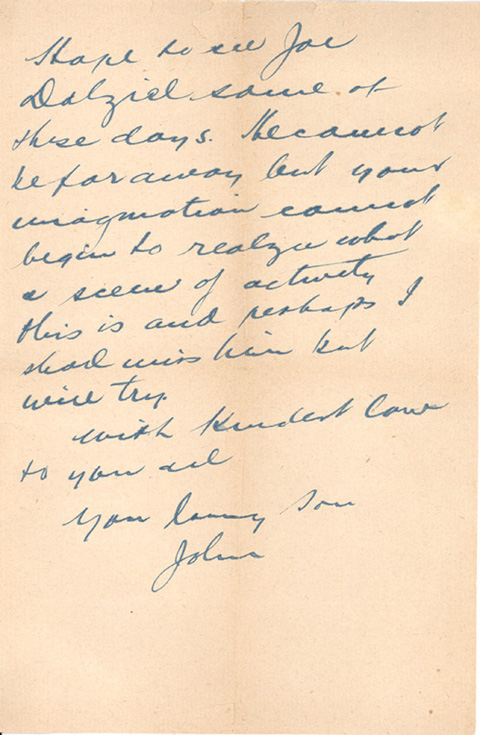 Hope to see Joe
Dalziel some of
these days. He cannot
be far away but your
imagination cannot
begin to realize what
a scene of activity
this is and perhaps I
shall miss him but
will try.
With kindest love
to you all
Your loving son
John